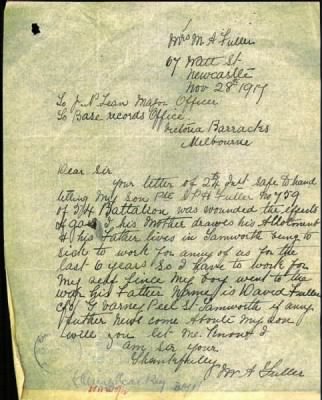 Mrs M A Fuller
67 Watt St
Newcastle
Nov 28th 1917
To J. N Lean Major Officer
To Base records Office
Victoria Barracks
Melbourne
Dear Sir
Your letter of 24 Inst safe to hand
letting my son Pte S. P. H Fuller No 759
of 34 Battalion was wounded the efects
of gas I his Mother drawes his Allotment
& his Father lives in Tamworth being to
sick to work for anny of us for the
last 6 years So I have to work for
my self since my boy went to the
war his Father Name is David Fuller
C/o G Varney Peel St Tamworth if anny
futher News come Aboute my son
will you let me Know &
I am Sir your
Thankfully
M A Fuller